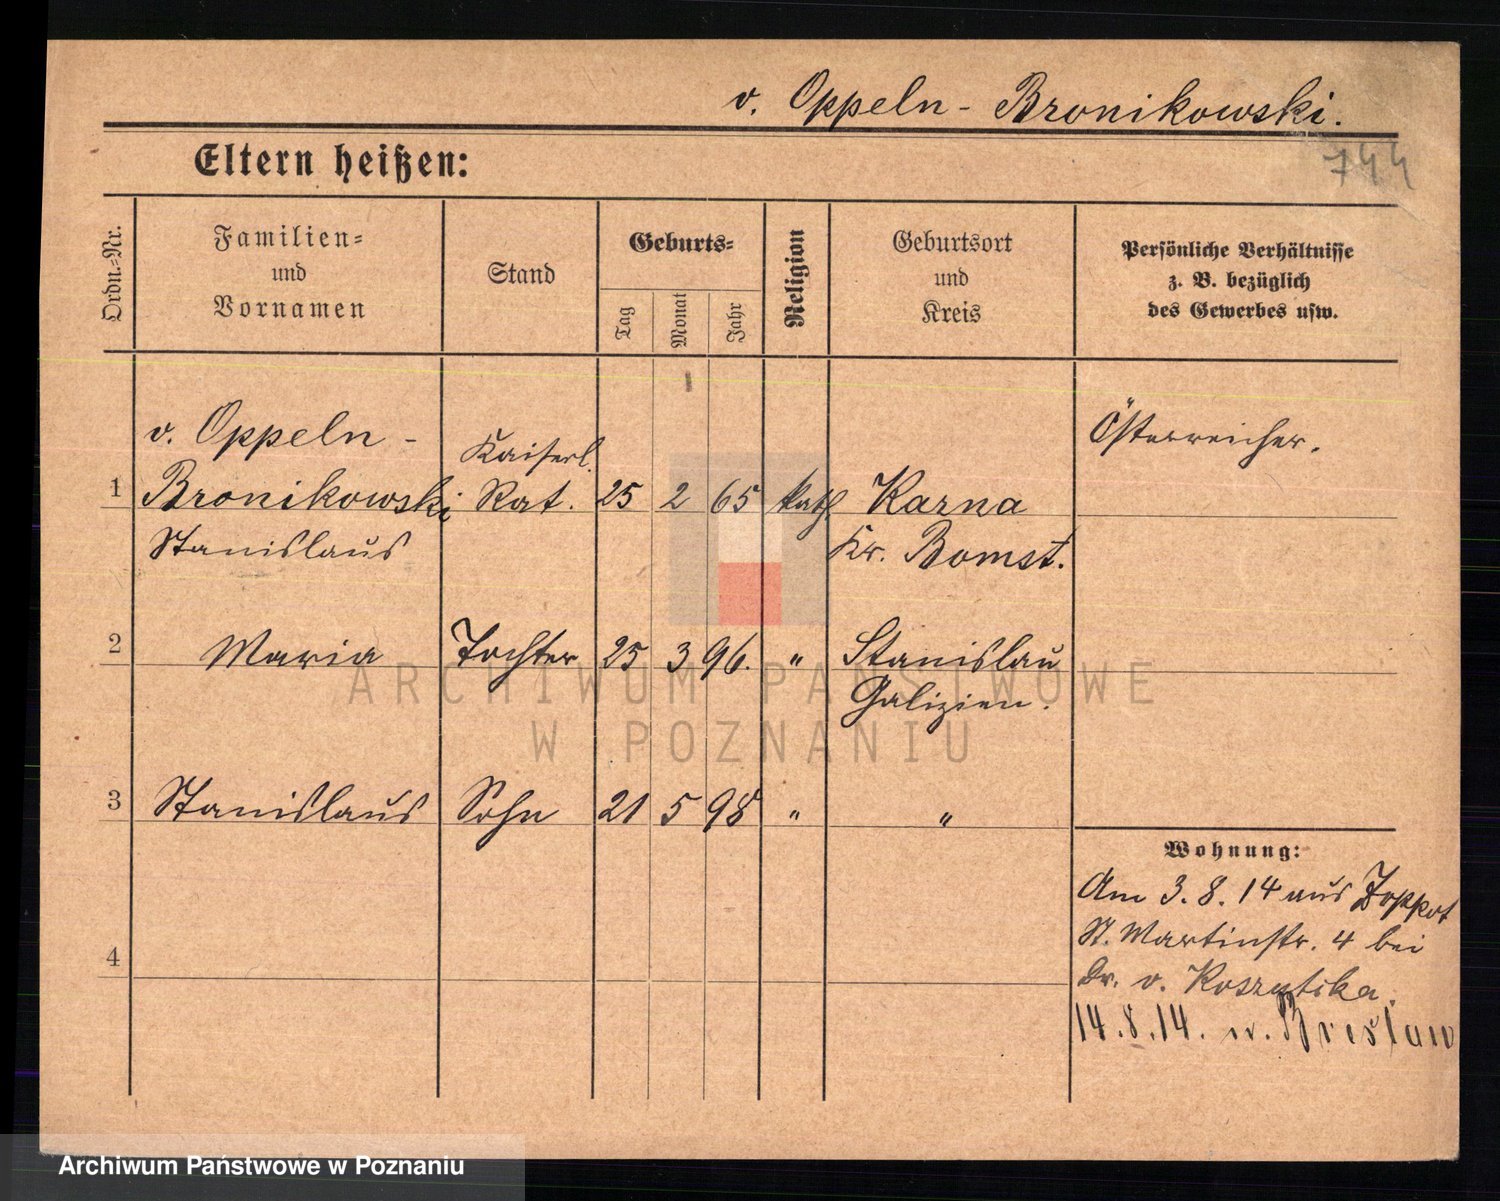 v. Oppeln - Bronikowski.
744
Eltern heißen:
Ordn.-Nr.
Familien-
und
Vornamen
Stand
Geburts-
Tag
Monat
Jahr
Religion
Geburtsort
und
Kreis
Persönliche Verhältnisse
z. B. bezüglich
des Gewerbes usw.
1
v. Oppeln -
Bronikowski
Stanislaus
Kaiserl.
Rat.
25 2 65
kath
Karna
Kr. Bomst.
Österreicher.
2
Maria
Tochter
25 3 96.
"
Stanislau
Galizien.
3
Stanislaus
Sohn
21 5 98
"
"
4
Wohnung:
Am 3. 8. 14 aus Zoppot
St. Martinstr. 4 bei
Dr. v. Koszutska.
14. 8. 14. n. Breslau
ARCHIWUM PAŃSTWOWE
W POZNANIU
Archiwum Państwowe w Poznaniu